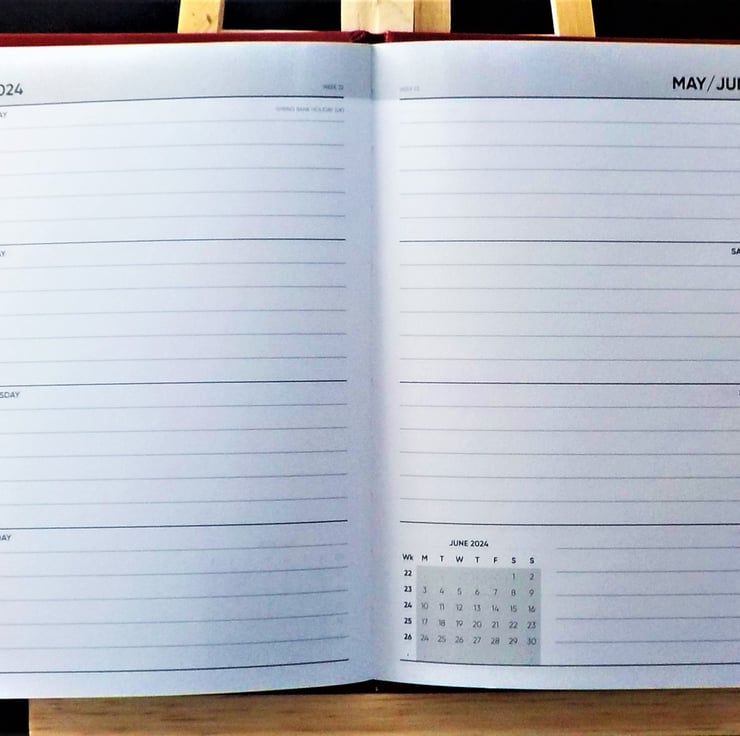 024
WEEK 22
AY
SPRING BANK HOLIDAY (UK)
AY
SDAY
AY
WEEK 22
MAY/JUN
SA
JUNE 2024
Wk M T W T F S S
22 1 2
23 3 4 5 6 7 8 9
24 10 11 12 13 14 15 16
25 17 18 19 20 21 22 23
26 24 25 26 27 28 29 30